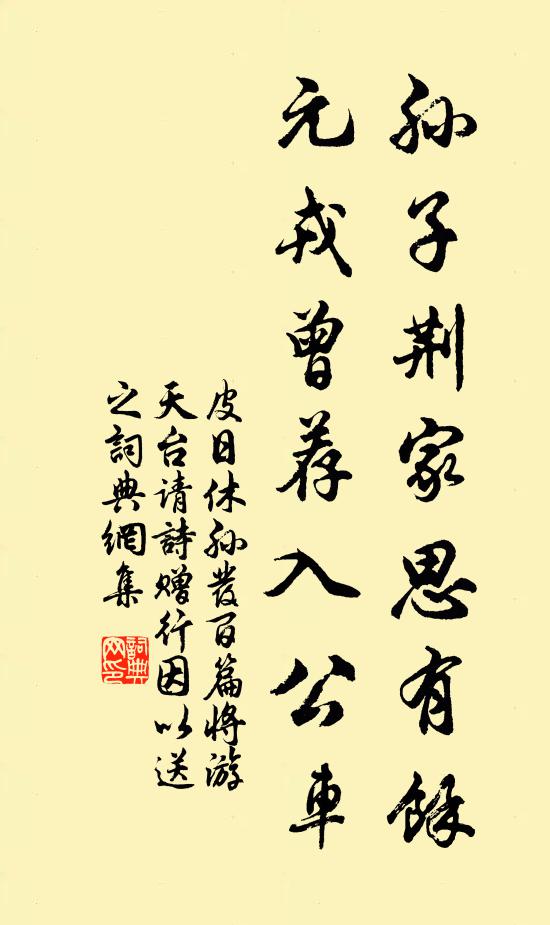 孙子荆家思有餘
元戎曾荐入公車
皮日休孙發百篇将游
天台请詩赠行因以送
之詞典網集
詞典網印